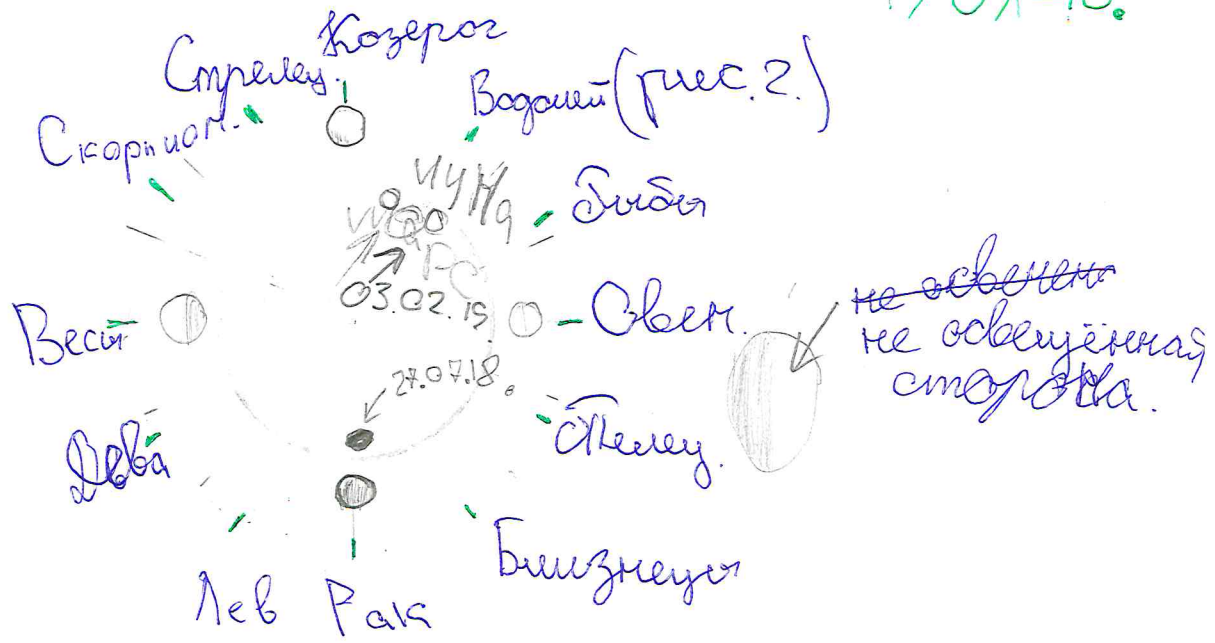 Козерог
Стрелец.
Водолей (рис. 2.)
Скорпион.
Рыбы
03.02.19.
Овен.
Весы
не освещен
не освещённая
сторона.
27.07.18.
Телец.
Дева
Близнецы
Лев Рак